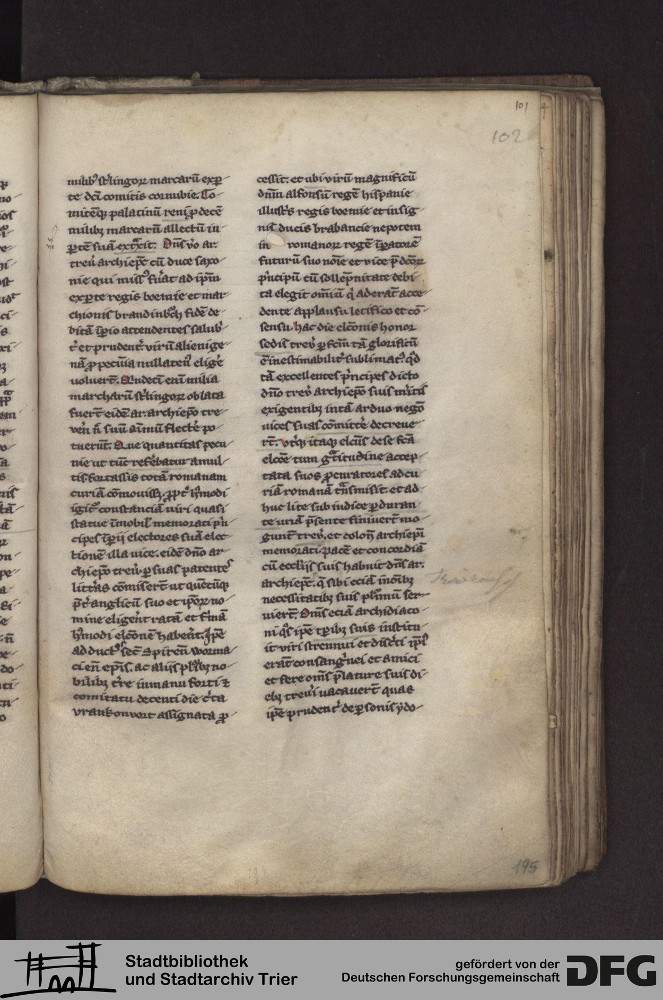 101
102
milibꝫ st͛lingoꝝ marcarū exꝑ
te dc̄i comitis cornubie. Co
mitēqꝫ palatinū reni ꝓ decē
milibꝫ marcarū allectū in
ꝑtē suā extͣxit. Dn̄s v͛o ar.
trev͛ archiepc̄ cū duce saxo
nie qui missꝰ fu͛at ad ip̄m
ex ꝑte regis boemie et mar
chionis brandinbͥch fidē de
bitā īꝑio attendentes salubͥ
t͛ et prudent͛ virū alienige
nā ꝓ pecunia nullatenꝰ elig͛e
voluerūt. Quindecī enī milia
marcharū st͛lingoꝝ oblata
fuerūt eidē ar. archiepō tre
ver̄ si suū aīmū flect͛e po
tuerūt. Que quantitas pecu
nie ut tūc ref͛ebatur a mul
tis fortassis totā romanam
curiā cōmouissꝫ. ꝓpt͛ hͥmodi
igit᷑ constanciā viri quasi
statue īmobilꝭ memorati pͥn
cipes īꝑii electores suā elec
tionē illa vice. eidē dn̄o ar
chiepō trev͛ ꝑ suas patentes
litt͛as cōmiserūt ut quēcūqꝫ
pret͛ anglicū suo et ip̄oꝝ no
mine eligeret ratā et firmā
hͥmodi elc̄onē haberēt. Ip̄e
adductꝭ secū spiren̄ worma
cien̄ ep̄is. ac aliis plͥbꝫ no
bilibꝫ t͛re in manu forti ⁊
comitatu decenti die c͛ta
vrankonvort assignata ꝓ
cessit. et ubi virū magnificū
dn̄m alfonsū regē hispanie
illustͥs regis boemie et insig
nis ducis brabancie nepotem
in romanoꝝ regē īꝑatorē
futurū suo noīe et vice p̄dc̄oꝝ
pͥncipū cū sollēpnitate debi
ta elegit omīū qͥ aderāt acce
dente applausu letifico et cō
sensu. hac die elc̄onis honor
sedis trev͛ ꝑ fcm̄ tā glorificū
ē inestimabilit͛ sublimatꝰ. qd̄
tā excellentes pͥncipes dicto
dn̄o trev͛ archiepō suis mͥitis
exigentibꝫ in tā arduo negō
vices suas cōmitt͛e decreve
rūt. vt͛qꝫ itaqꝫ elc̄us de se fc̄a
elcōe cum gͣtitudine accep
tata suos ꝓcuratores ad cu
riā romanā tͣnsmisit. et ad
huc lite sub iudice ꝑduran
te
necessitatibꝫ suis plͥmū ser
vierūt. Om̄s eciā archidiaco
ni qͥs ip̄e tꝑibꝫ suis institu
it viri strennui et discͥti ip̄iꝰ
erāt consangͥnei et amici
et fere om̄s p̄lature suis di
ebꝫ trev͛i vacauerūt quas
ip̄e prudent͛ de ꝑsonis ydo
195
Stadtbibliothek
und Stadtarchiv Trier
gefördert von der
Deutschen Forschungsgemeinschaft
DFG